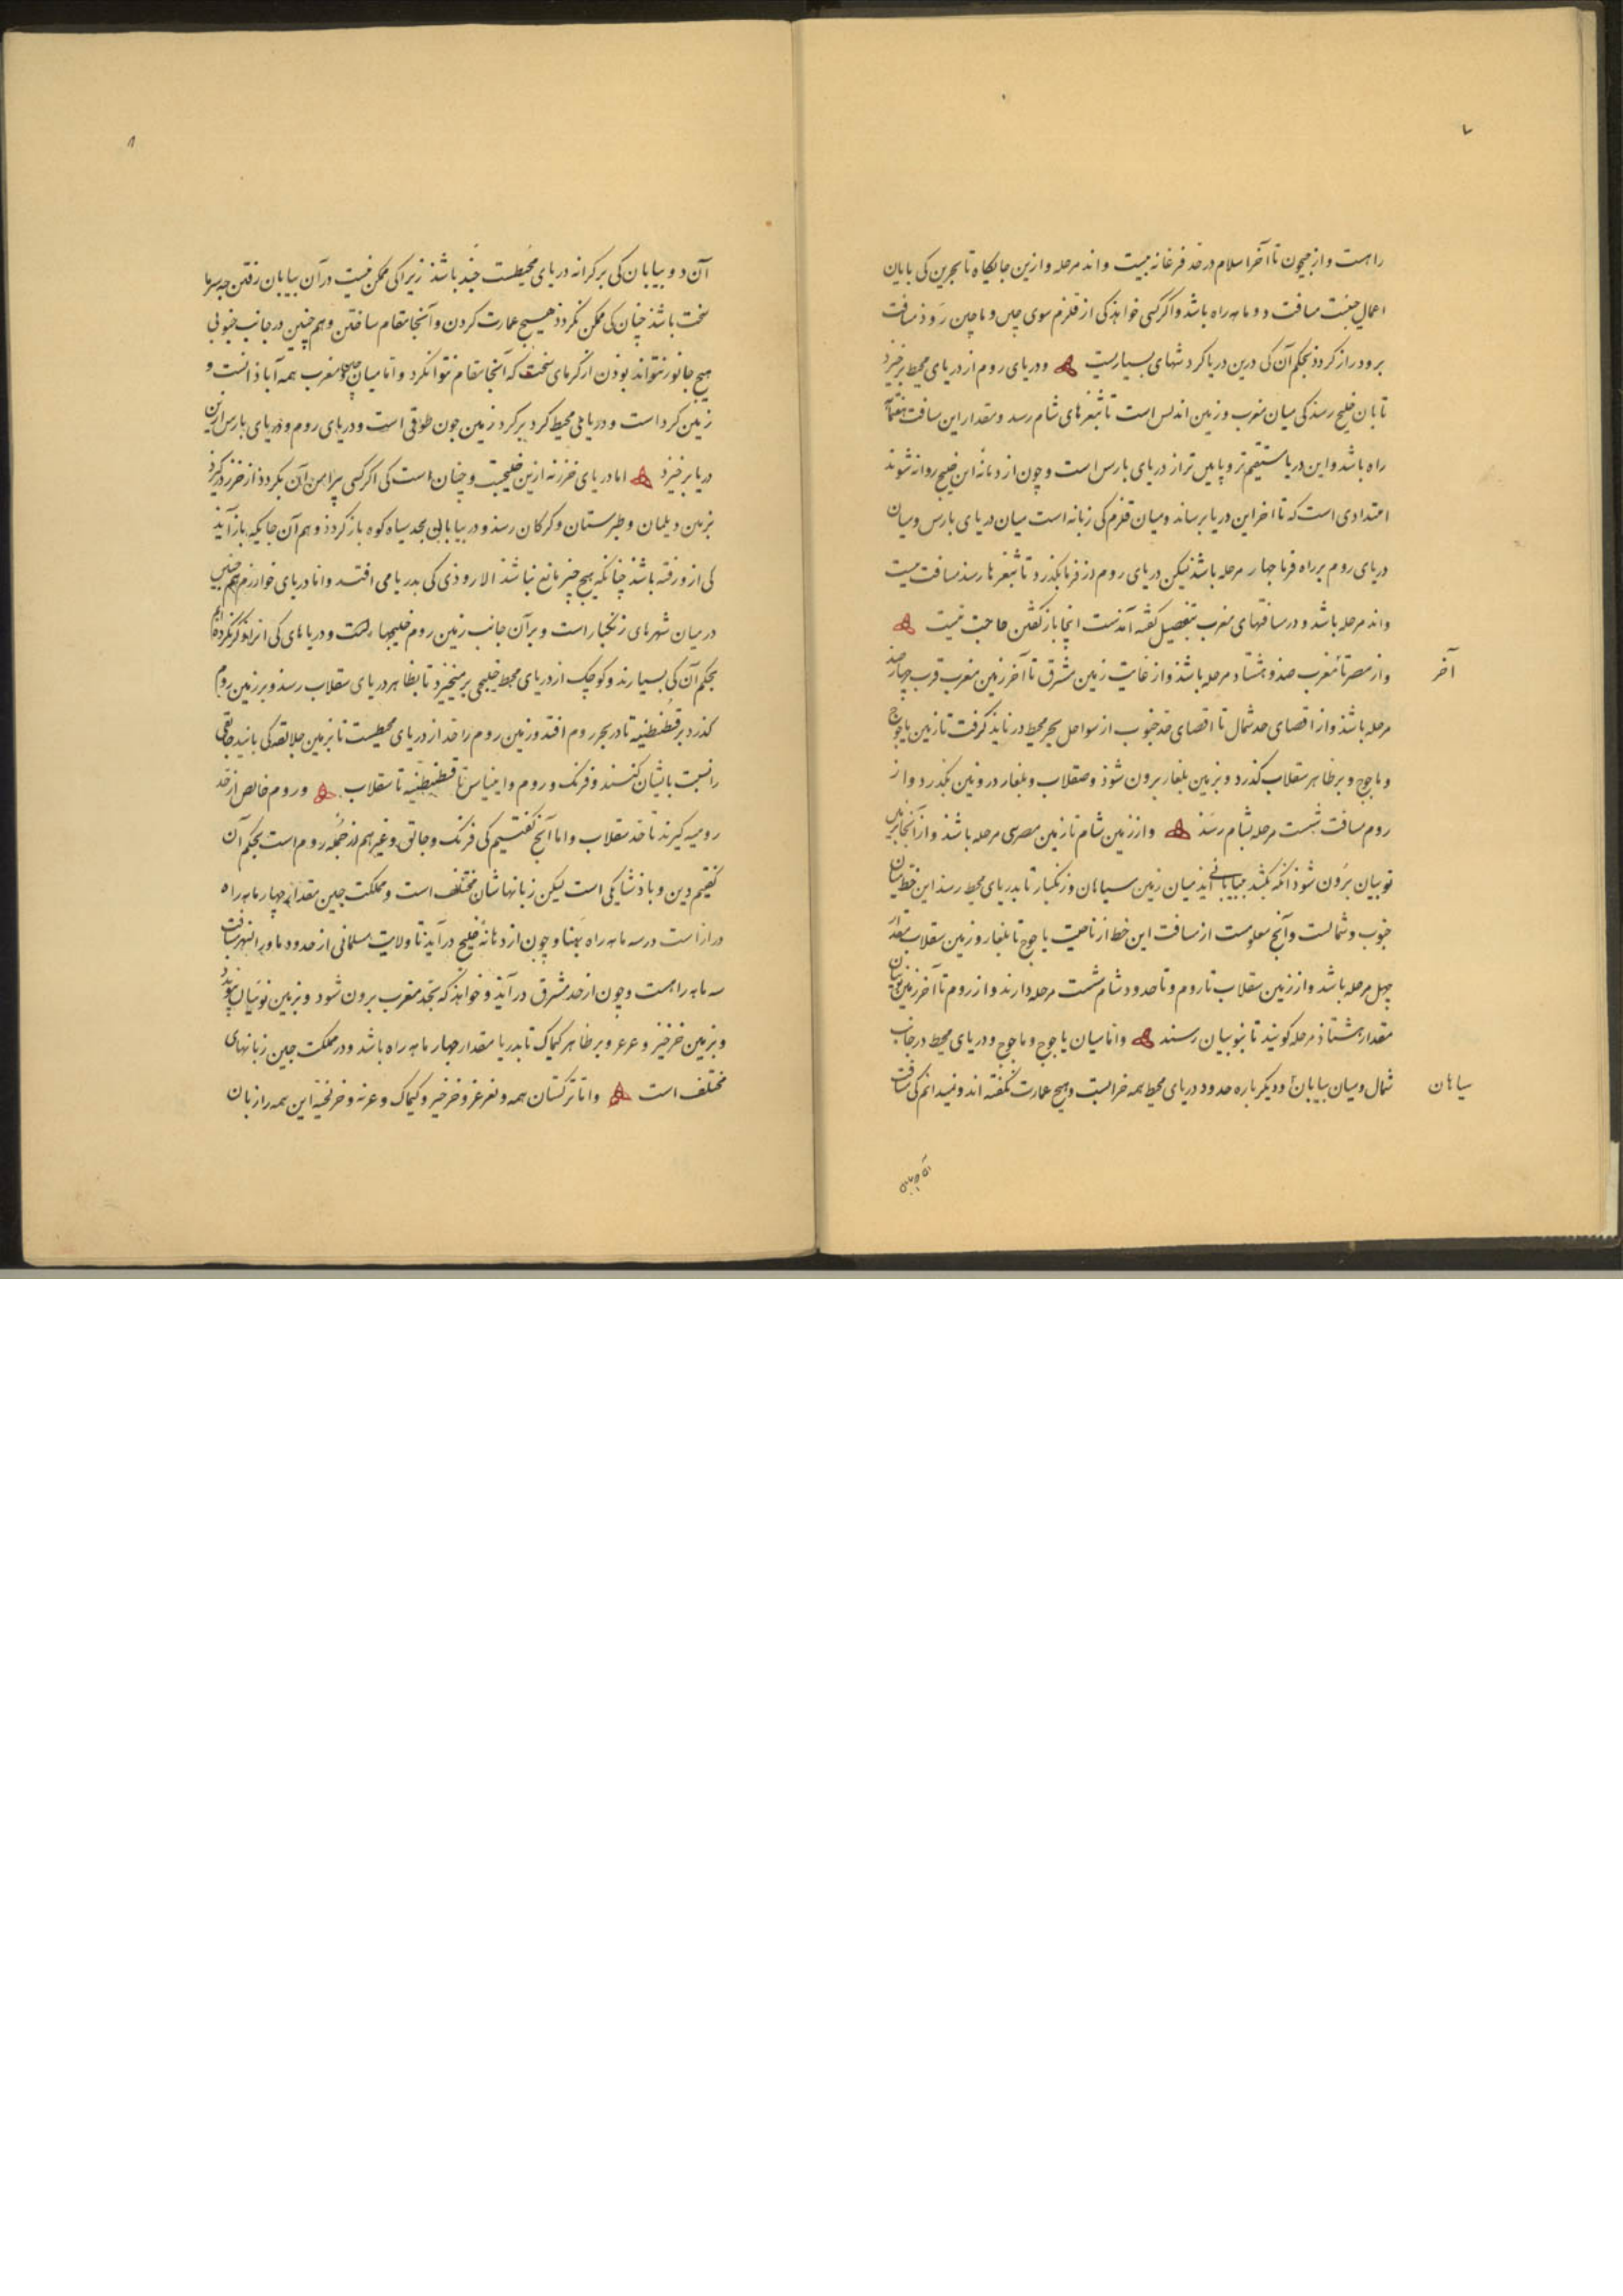 ۷
راهست و از جیحون تا آخر اسلام در حد فرغانه بیست و اند مرحله و ازین جایگاه تا بحرین کی بایان
اعمال جینست مسافت دو ماهه راه باشد و اگر کسی خواهذ کی از قلزم سوی چین و ماچین رَوذ مسافت
برو دراز کردد بحکم آن کی درین دریا کردشهای بسیاریست و دریای روم از دریای محیط برخیزد
تا بان خلیج رسد کی میان مغرب و زمین اندلس است تا بثغرهای شام رسد و مقدار این مسافت هفتماهه
راه باشد و این دریا مستقیم‌تر و پایین‌تر از دریای بارس است و چون از دهانهٔ این خلیج روانه شوند
اعتدادی است که تا اخر این دریا برساند و میان قلزم کی زبانه است میان دریای بارس و میان
دریای روم بر راه فرما چهار مرحله باشد لیکن دریای روم از فرما بکذرد تا بثغرها رسد مسافت بیست
و اند مرحله باشد و در مسافتهای مغرب بتفصیل کفته آمدست اینجا باز کفتن حاجت نیست
و از مصر تا مغرب صد و هشتاد مرحله باشد و از غایت زمین مشرق تا آخر زمین مغرب قرب چهارصد
آخر
مرحله باشد و از اقصای حد شمال تا اقصای حد جنوب از سواحل بحر محیط در باید کرفت تا زمین یاجوج
و ماجوج و بر ظاهر سقلاب کذرد و بزمین بلغار برون شوذ و صقلاب و بلغار در زمین بکذرد و از
روم مسافت شست مرحله بشام رسَذ و از زمین شام تا زمین مصر سی مرحله باشد و از آنجا بزمین
نوبیان برون شوذ انکه بکشد بیابانی آید میان زمین سیاهان و زنکبار تا بدریای محیط رسد این خط میان
جنوب و شمالست و آنچ معلومست از مسافت این خط از ناحیت یاجوج تا بلغار و زمین سقلاب مقدار
چهل مرحله باشد و از زمین سقلاب تا روم و تا حدود شام شست مرحله دارند و از روم تا آخر زمین نوبیان
مقدار هشتاذ مرحله کویند تا بنوبیان رسند و اما میان یاجوج و ماجوج و دریای محیط در جانب
شمال و میان بیابان و دیکر باره حدود دریای محیط همه خرابست و هیچ عمارت نکفته اند و نمیدانم کی مسافت
سیاهان
۸
آن دو بیابان کی بر کرانه دریای محیطست چند باشد زیرا کی ممکن نیست در آن بیابان رفتن چه سرما
سخت باشد چنان کی ممکن نکردد هیچ عمارت کردن و آنجا مقام ساختن و هم چنین در جانب جنوبی
هیچ جانور نتواند بوذن از کرمای سخت که آنجا مقام نتوانکرد و اما میان چین و مغرب همه آباذانست و
زمین کرد است و دریای محیط کرد بر کرد زمین چون طوقی است و دریای روم و دریای بارس ازین
دریا برخیزد اما دریای خزر نه ازین خلیجست و چنان است کی اکر کسی پیرامن آن بکردد از خزر درکیرد
بزمین دیلمان و طبرستان و کرکان رسد و در بیابانی بحد سیاه کوه باز کردد و هم آن جایکه باز آید
کی از و رفته باشد چنانکه هیچ چیز مانع نباشد الا روذی کی بدریا می افتد و اما دریای خوارزم هم چنین
در میان شهرهای زنکبار است و بر آن جانب زمین روم خلیجها هست و دریاهای کی از او ذکر نکرده‌ایم
بحکم آن کی بسیارند و کوچک از دریای محیط خلیجی برمیخیزد تا بظاهر دریای سقلاب رسد و بر زمین روم
کذرد بر قسطنطنیه تا در بحر روم افتد و زمین روم را حد از دریای محیطست تا بزمین جلالقه کی
را نسبت بایشان کنند و فرنک و روم و ایناس تا قسطنطنیه تا سقلاب و روم خالص از حَد
رومیه کیرند تا حد سقلاب و اما آنچ کفتیم کی فرنک و جالق و غیر هم از جُمله روم است بحکم آن
کفتیم دین و باذشا یکی است لیکن زبانهاشان مختلف است و مملکت چین مقدار چهار ماهه راه
دراز است در سه ماهه راه پهنا و چون از دهانهٔ خلیج درآید تا ولایت مسلمانی از حدود ماورالنهر مسافت
سه ماهه راهست و چون از حد مشرق درآید و خواهذ که بحد مغرب برون شود و بزمین
و بزمین خرخیز و غزغز و بر ظاهر کیماک تا بدریا مقدار چهار ماهه راه باشد و در مملکت چین زبانهای
مختلف است و اما ترکستان همه و تغزغز و خرخیز و کیماک و غزنه و خرلخیه این همه را زبان